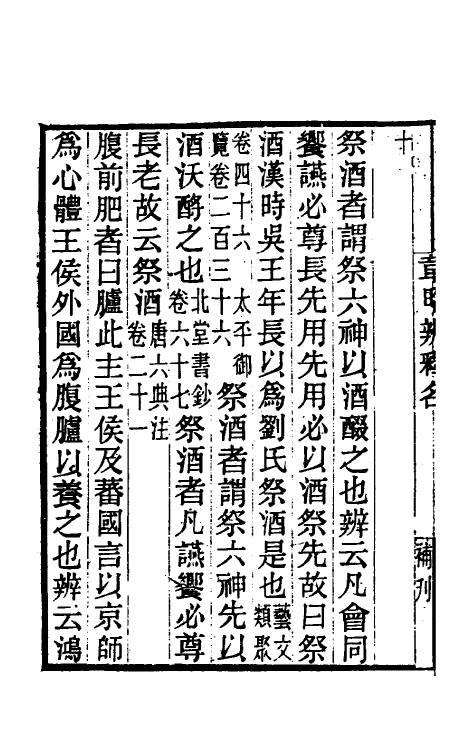 韋昭辨釋名
補列
十
祭酒者謂祭六神以酒醊之也辨云凡會同
饗讌必尊長先用先用必以酒祭先故曰祭
酒漢時吳王年長以為劉氏祭酒是也藝文類聚
卷四十六 太平御覽卷二百三十六 祭酒者謂祭六神先以
酒沃酹之也北堂書鈔卷六十七 祭酒者凡讌饗必尊
長老故云祭酒唐六典注卷二十一
腹前肥者曰臚此主王侯及蕃國言以京師
為心體王侯外國為腹臚以養之也辨云鴻